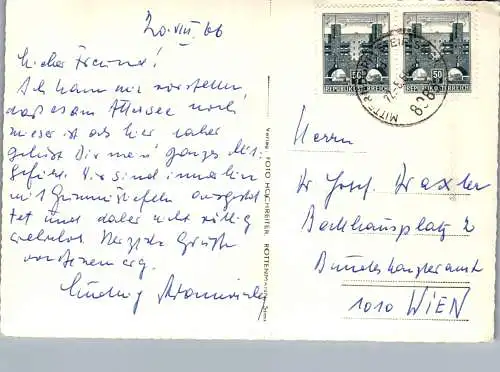 20.VIII.66
Lieber Freund!
Ich kann mir vorstellen,
daß es am Attersee noch
mieser ist als hier daher
gehört Dir mein ganzes Mit-
gefühl. Wir sind immerhin
mit Gummistiefeln ausgestat-
tet und daher nicht völlig
wehrlos. Herzliche Grüße
von Deinem
Ludwig
Verlag FOTO HOCHREITER, ROTTENMANN
50 50
REPUBLIK ÖSTERREICH REPUBLIK ÖSTERREICH
Herrn
Dr Josef Kraxler
Ballhausplatz 2
Bundeskanzleramt
1010 WIEN